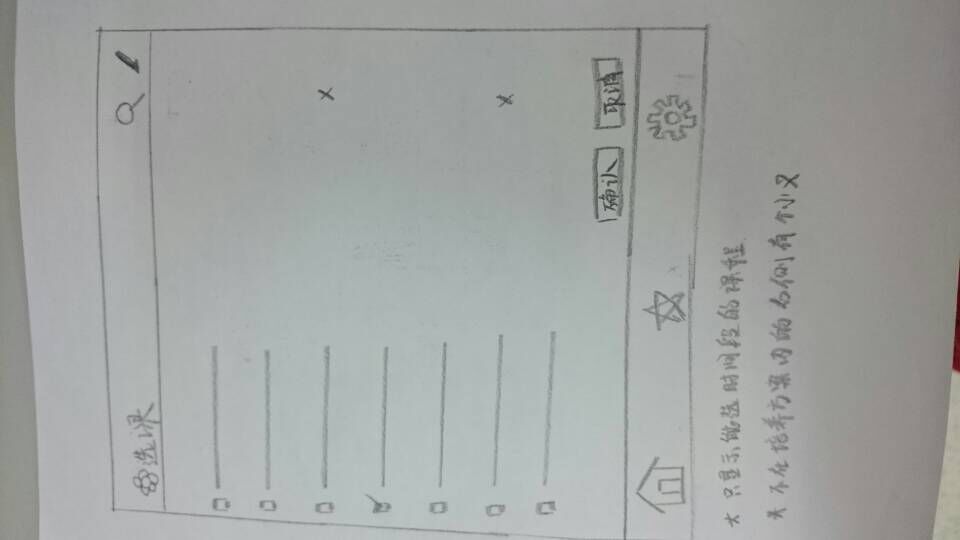 选课
确认 取消
* 只显示能选时间段的课程
* 不在培养方案内的右侧有个小叉